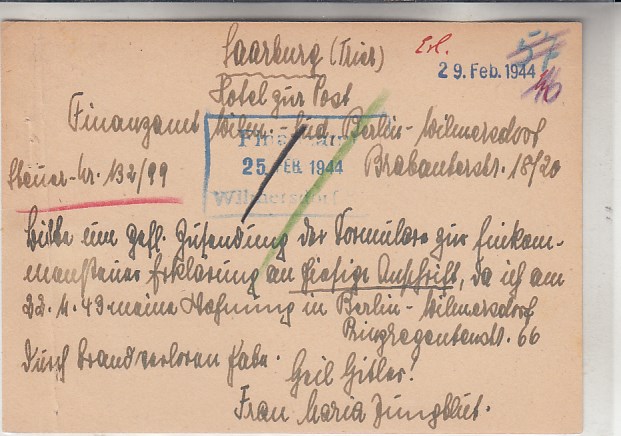 Saarburg (Trier)
Erl.
29. Feb. 1944
Hotel zur Post
Finanzamt Wilm.-Süd Berlin-Wilmersdorf
Finanzamt
25. FEB. 1944
Wilmersdorf
Brabanterstr. 18/20
Steuer-Nr. 132/99
Bitte um gefl. Zusendung der Formulare zur Einkom-
mensteuer Erklärung an hiesige Anschrift, da ich am
22. 11. 43 meine Wohnung in Berlin-Wilmersdorf
Ringregentenstr. 66
durch Brand verloren habe.
Heil Hitler!
Frau Maria Jungblut.